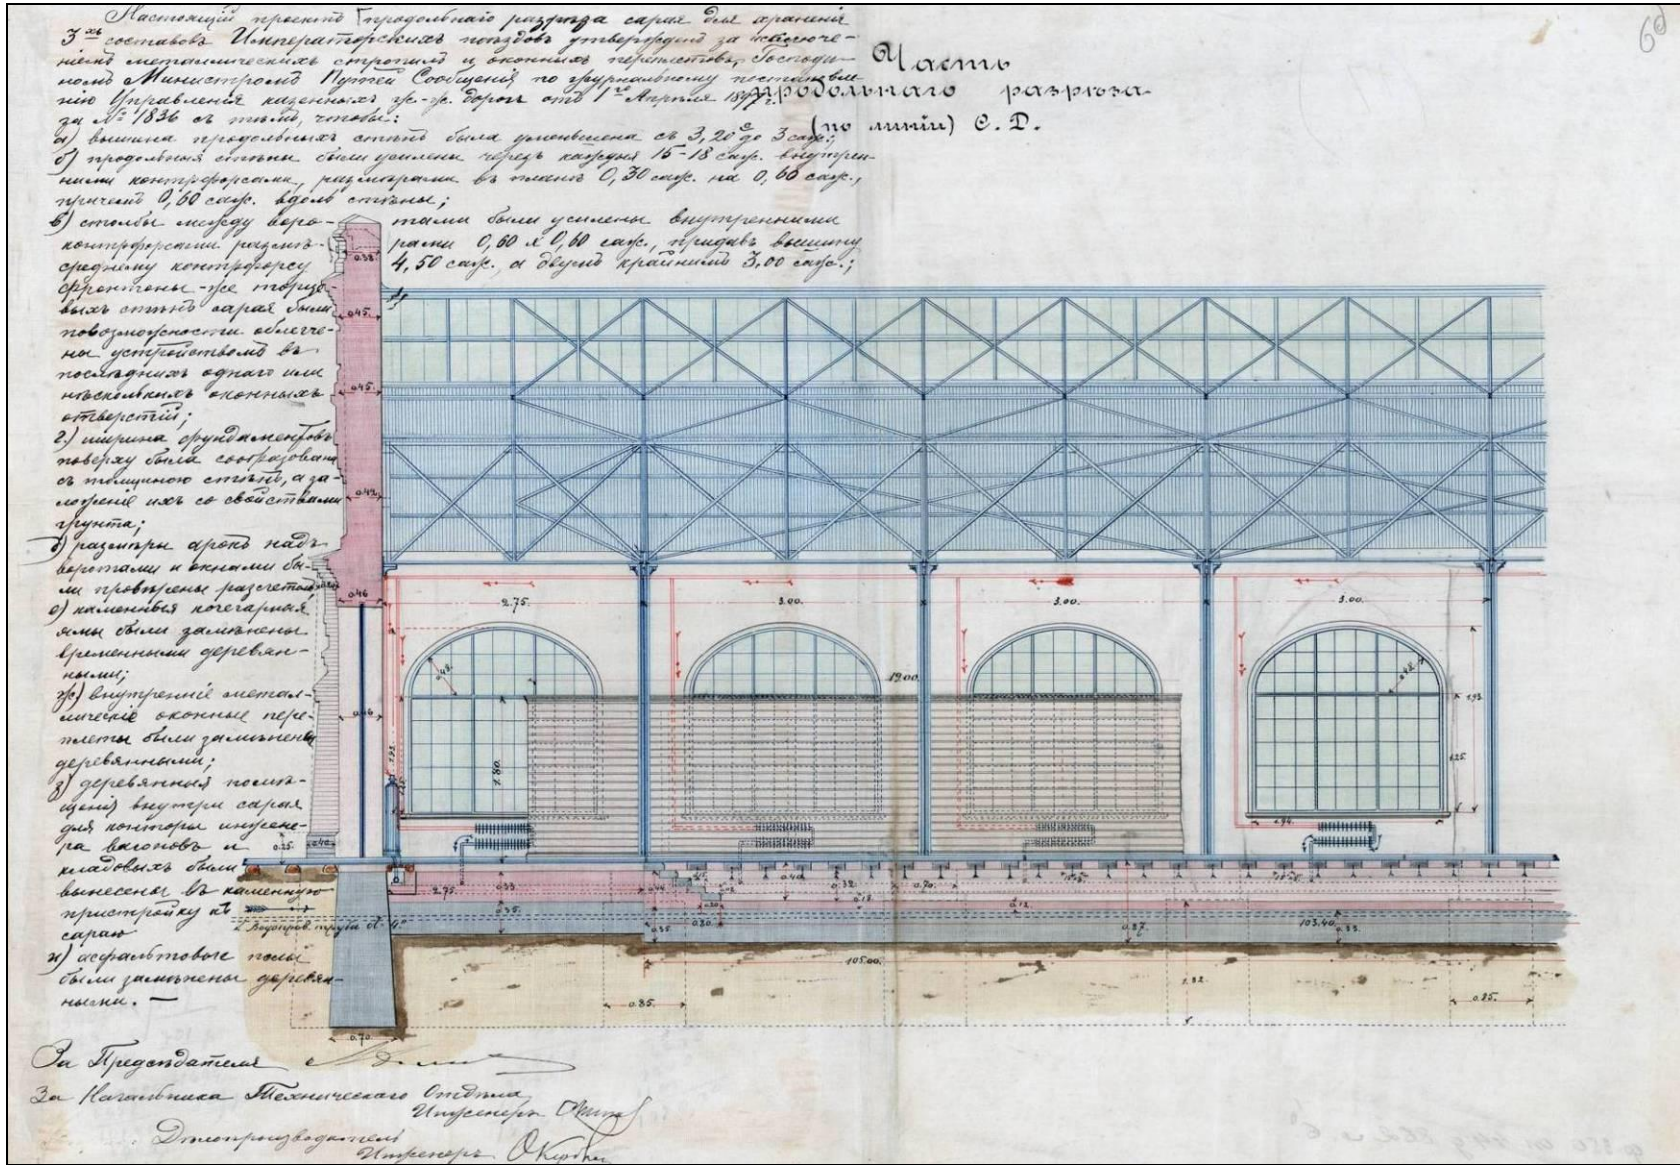 Настоящій проектъ продольнаго разрѣза сарая для храненія
3хъ составовъ Императорскихъ поѣздовъ утвержденъ за исключе-
ніемъ металлическихъ стропилъ и оконныхъ переплетовъ, Господи-
номъ Министромъ Путей Сообщенія по журнальному постановле-
нію Управленія казенныхъ ж.-ж. дорогъ отъ 1го Апрѣля 1897 г.
за № 1836 съ тѣмъ, чтобы:
а) вышина продольныхъ стѣнъ была уменьшена съ 3,20 с до 3 саж.;
б) продольныя стѣны были усилены черезъ каждыя 15-18 саж. внутрен-
ними контрфорсами, размѣрами въ планѣ 0,30 саж. на 0,60 саж.,
причемъ 0,60 саж. вдоль стѣны;
в) столбы между воро- тами были усилены внутренними
контрфорсами размѣ- рами 0,60 x 0,60 саж., придавъ вышину
среднему контрфорсу 4,50 саж., а двумъ крайнимъ 3,00 саж.;
фронтоны-же торцо-
выхъ стѣнъ сарая были
повозможности облегче-
ны устройствомъ въ
послѣднихъ одного или
нѣсколькихъ оконныхъ
отверстій;
г) ширина фундаментовъ
поверху была сообразована
съ толщиною стѣнъ, а за-
ложеніе ихъ со свойствами
грунта;
д) размѣры арокъ надъ
воротами и окнами бы-
ли провѣрены разсчетомъ
е) каменныя кочегарныя
ямы были замѣнены
временными деревян-
ными;
ж) внутренніе метал-
лическіе оконные пере-
плеты были замѣнены
деревянными;
з) деревянныя помѣ-
щенія внутри сарая
для конторы инжене-
ра вагоновъ и
кладовыхъ были
вынесены въ каменную
пристройку къ
сараю
и) асфальтовые полы
были замѣнены деревян-
ными. —
Часть
продольнаго разрѣза
(по линіи) С. D.
0.38
0.45
0.45
0.42
0.46
2.75
3.00
3.00
3.00
0.46
19.00
1.80
1.93
1.25
1.94
0.25
2.75
0.35
0.40
0.32
0.70
0.12
0.87
103.40
0.33
Водопров. труба d=4"
105.00
1.32
0.85
0.85
0.70
За Предсѣдателя
За Начальника Техническаго Отдѣла
Инженеръ
Дѣлопроизводитель
Инженеръ